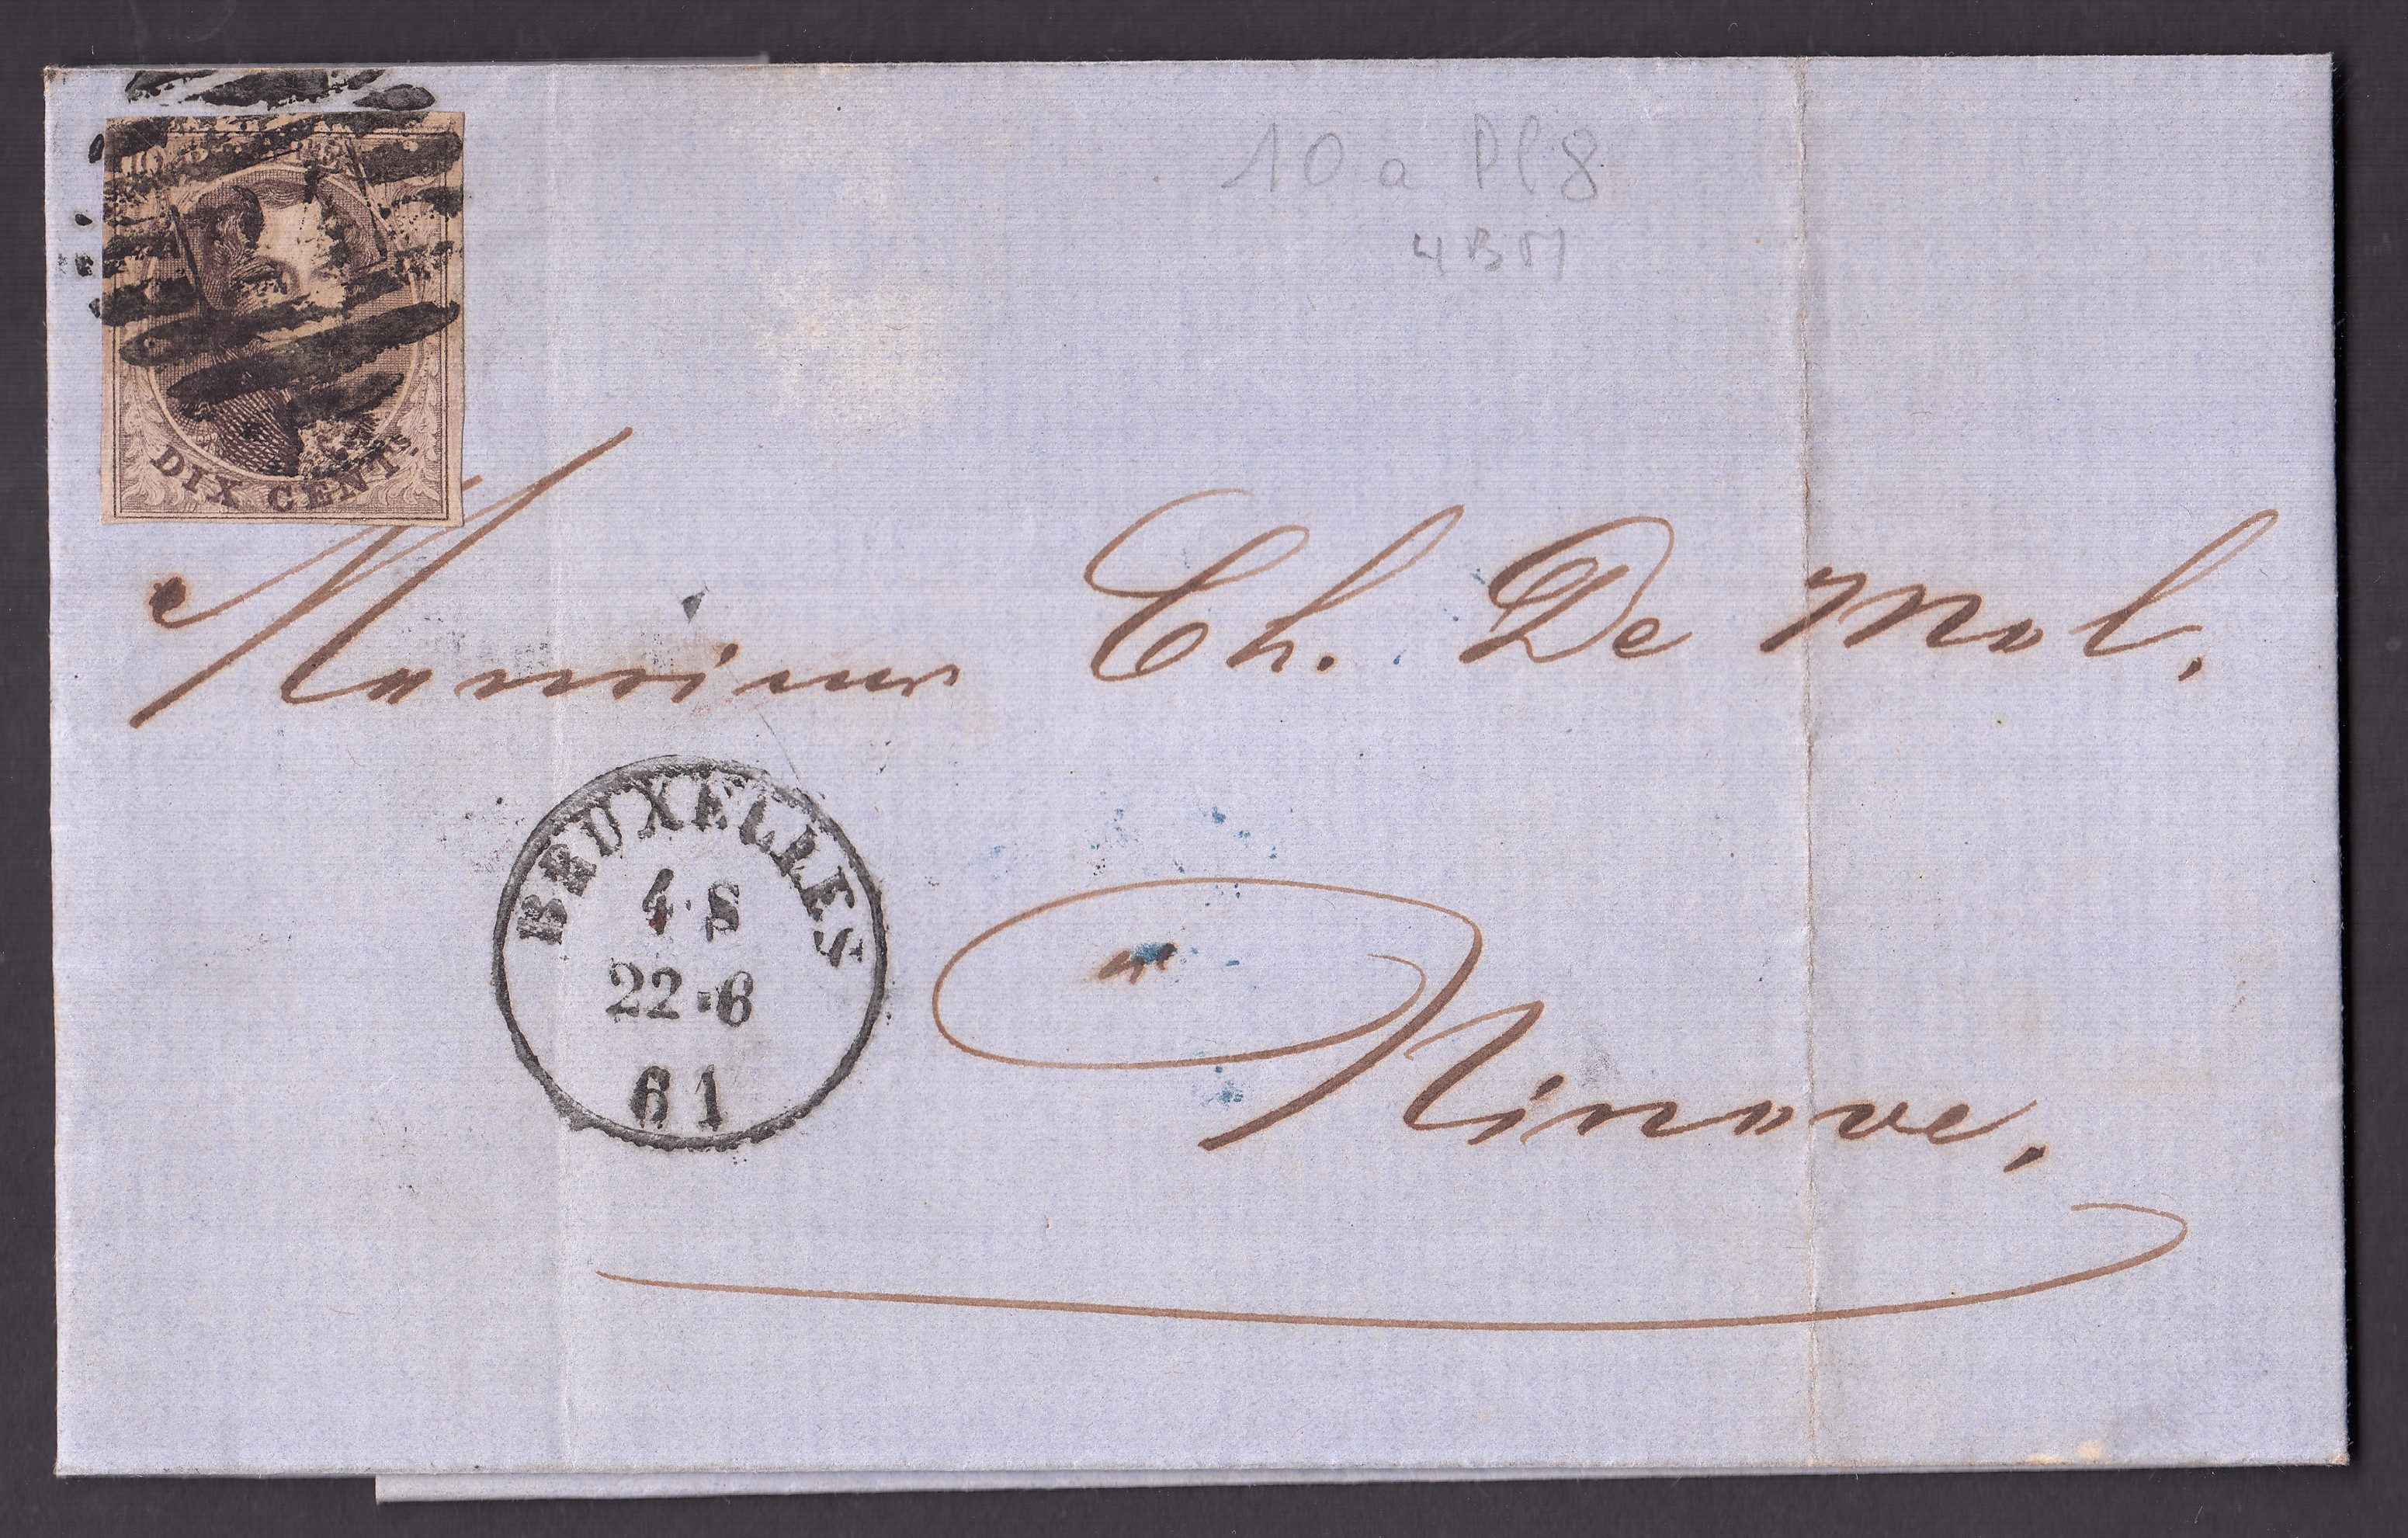 10 a Pl 8
4 B M
DIX CENTS.
Monsieur Ch. De Mol.
BRUXELLES
4·S
22·6
61
Ninove.